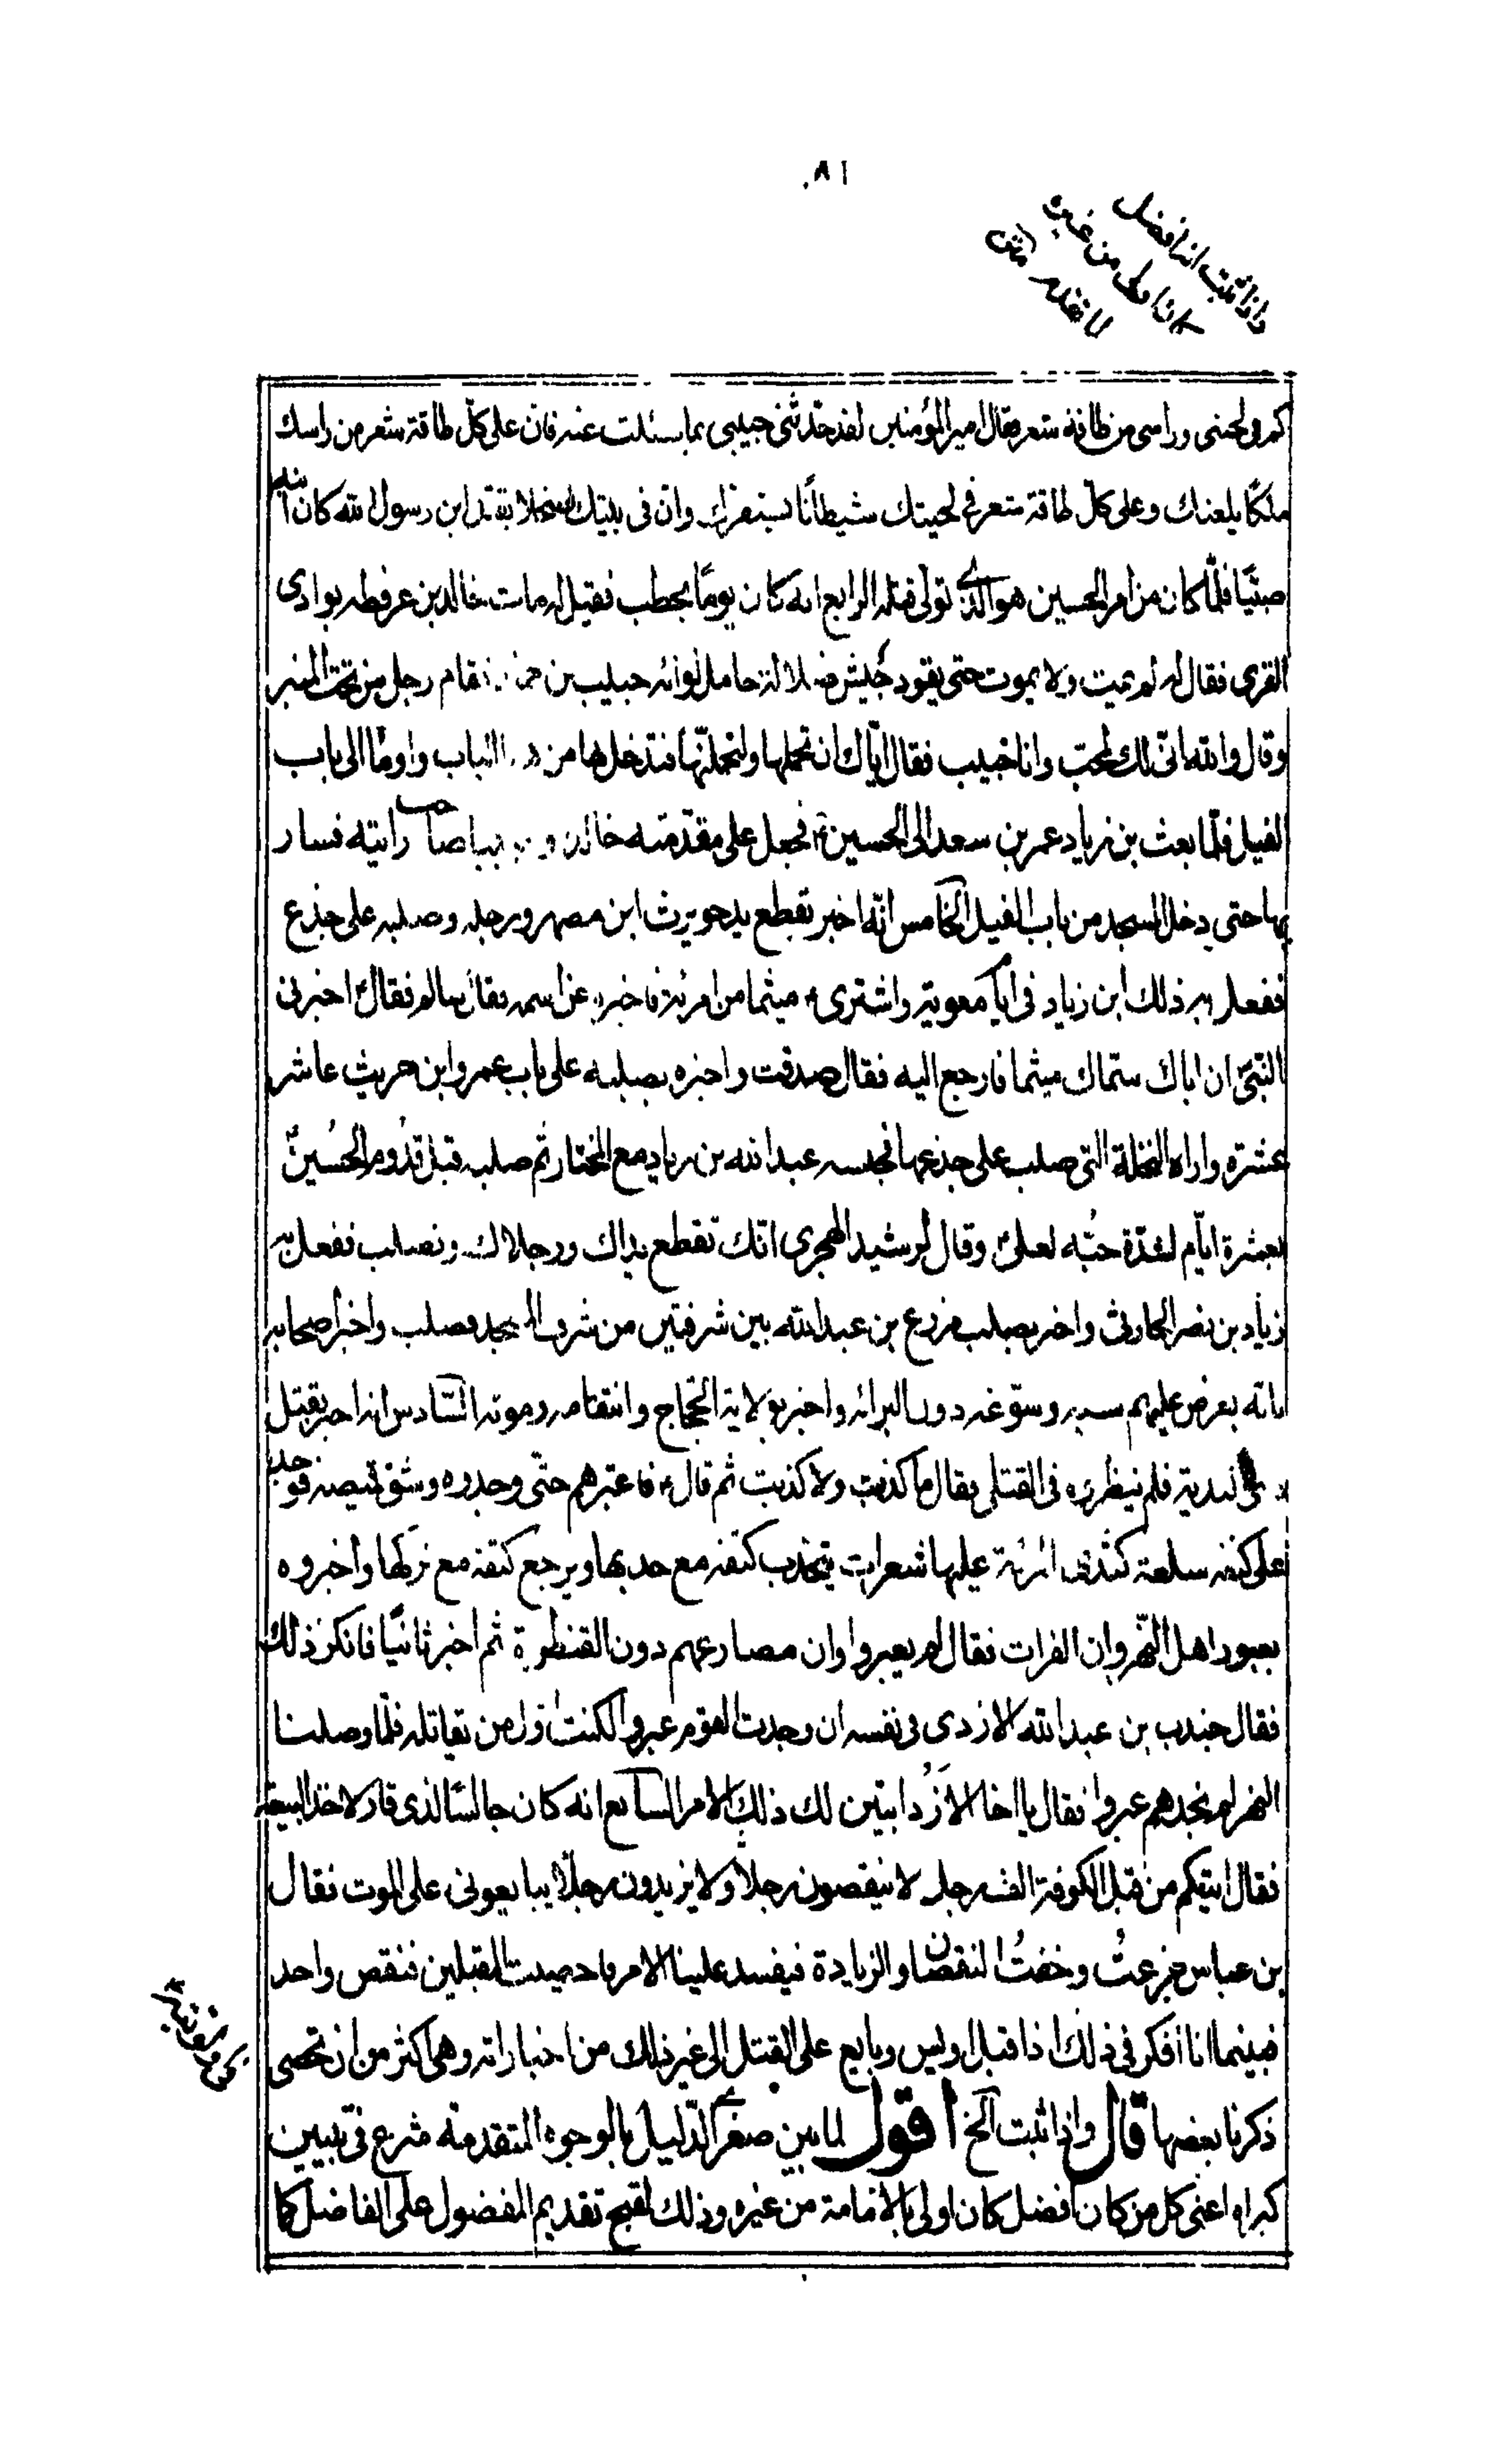 ٨١
واذا ثبت انه افضل
كم فى لحيتى وراسى من طاقة شعر فقال امير المؤمنين لقد حدثنى حبيبى بما سئلت عنه فان على كلّ طاقة شعر من راسك
ملكًا يلعنك وعلى كلّ طاقة شعر فى لحيتك شيطانًا يستفزك وان فى بيتك سخلا يقتل ابن رسول الله كان ابنه
صبيًّا فلمّا كان من امر الحسين هو الذى تولى قتله الرابع انه كان يومًا يخطب فقيل له مات خالد بن عرفطه بوادى
القرى فقال لم يمت ولا يموت حتى يقود جيش ضلالة حامل لوائه حبيب بن فقام رجل من تحت المنبر
وقال والله انّى لك لمحبّ وانا حبيب فقال ايّاك ان تحملها ولتحملنّها فتدخل بها من الباب واومأ الى باب
الفيل فلمّا بعث بن زياد عمر بن سعد الى الحسين ع فجعل على مقدّمته خالد و صاحب رايته فسار
بها حتى دخل المسجد من باب الفيل الخامس انّه اخبر بقطع يد جويرث ابن مصهر ورجله وصلبه على جذع
ففعل به ذلك ابن زياد فى ايام معوية واشترى ع ميثما من امرئة فاخبره عن اسمه فقال سالم فقال ع اخبرنى
النبىّ ان اباك سمّاك ميثما فارجع اليه فقال صدقت واخبره بصلبه على باب عمرو ابن حريث عاشر
عشرة واراه النخلة التى صلب على جذعها فحبسه عبد الله بن زياد مع المختار ثم صلبه قبل قدوم الحسين ع
بعشرة ايّام لشدّة حبّه لعلىّ وقال لرشيد الهجرى انّك تقطع يداك ورجلاك وتصلب ففعل به
زياد بن نصر الحارثى واخبر بصلب مزرع بن عبد الله بين شرفتين من شرف المسجد فصلب واخبر اصحابه
بانه يعرض عليهم سبه وسوّغه دون البرائه واخبر بولاية الحجاج وانتقامه وموته السّادس انه اخبر بقتل
ذى الثدية فلم ينظروه فى القتلى فقال ما كذبت ولا كذبت ثم قال ع فاعتبرهم حتّى وجدوه وشق قميصه فوجد
على كتفه سلعة كثدى المرئة عليها شعرات ينجذب كتفه مع جذبها ويرجع كتفه مع تركها واخبروه
بعبور اهل النّهروان الفرات فقال لم يعبروا وان مصارعهم دون القنطرة ثم اخبر ثانيًا فانكر ذلك
فقال جندب بن عبد الله الازدى فى نفسه ان وجدت القوم عبروا لكنت اول من تقاتله فلمّا وصلنا
النهر لم نجدهم عبروا فقال يا اخا الازد ابتين لك ذلك الامر السابع انه كان جالسًا لذى قار لاخذ البيعة
فقال ايتيكم من قبل الكوفة الف رجل لا ينقصون رجلاً ولا يزيدون رجلاً يبايعونى على الموت فقال
بن عباس فجزعتُ وخفتُ النقصان او الزيادة فيفسد علينا الامر فاحصيت المقبلين فنقص واحد
فبينما انا افكر فى ذلك اذا قبل اويس وبايع على القتل الى غير ذلك من اخباراته وهى اكثر من ان تحصى
ذكرنا بعضها قال واذا ثبت الخ اقول لما بين صغرى الدّليل بالوجوه المتقدمة شرع فى تبيين
كبراه اعنى كل من كان افضل كان اولى بالامامة من غيره وذلك لقبح تقديم المفضول على الفاضل كما